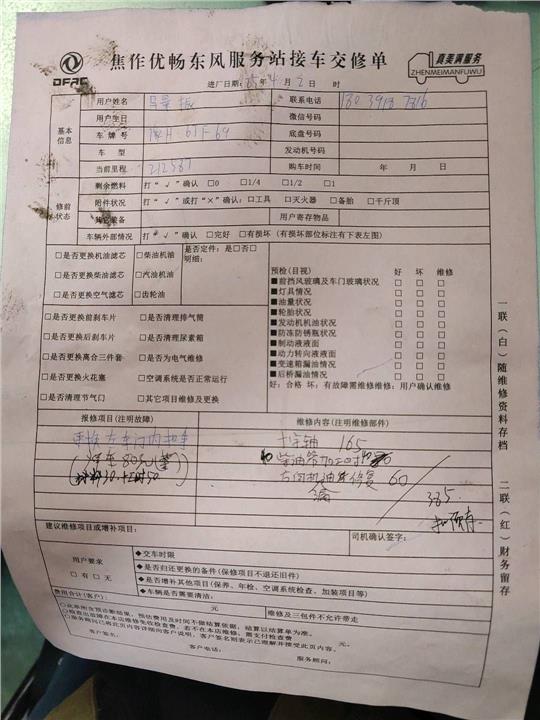 DFAC
焦作优畅东风服务站接车交修单
真美满服务
ZHENMEIMANFUWU
进厂日期: 年 4 月 2 日 时
基本信息
用户姓名
联系电话
用户生日
微信号码
车牌号 61F69
底盘号码
车型
发动机号码
当前里程 212587
购车时间 年 月 日
修前状态
剩余燃料 打“√”确认 □0 □1/4 □1/2 □1
附件状况 打“√”或打“×”确认: □工具 □灭火器 □备胎 □千斤顶
其它装备
用户寄存物品
车辆外部情况 打“√”确认 □完好 □有损坏 (有损坏部位标注有下表左图)
□是否更换机油滤芯 □柴油机油
□是否更换柴油滤芯 □汽油机油
□是否更换空气滤芯 □齿轮油
是否定件: 是□否□
明细:
□是否更换前刹车片 □是否清理排气筒
□是否更换后刹车片 □是否清理尿素箱
□是否更换离合三件套 □是否为电气维修
□是否更换火花塞 □空调系统是否正常运行
□是否清理节气门 □其它项目维修及更换
预检(目视) 好 坏 维修
■前挡风玻璃及车门玻璃状况 □ □ □
■灯具情况 □ □ □
■油量状况 □ □ □
■轮胎状况 □ □ □
■发动机机油状况 □ □ □
■防冻防锈瓶状况 □ □ □
■制动液液面 □ □ □
■动力转向液液面 □ □ □
■变速箱漏油情况 □ □ □
■后桥漏油情况 □ □ □
好: 合格 坏: 有故障需维修维修: 用户确认维修
报修项目(注明故障)
维修内容(注明维修部件)
更换左车门内扣手
十字轴 165
60
385
建议维修项目或增补项目:
司机确认签字:
用户要求
□有 □无
◆交车时限
◆是否归还更换的备件(保修项目不退还旧件)
◆是否增补其他项目(保养、年检、空调系统检查、加装项目等)
◆车辆是否需要清洁:
费用合计(客户): 元
维修及三包件不允许带走
○此单附含预诊断结果, 预估费用及时间不做结算依据; 结算以结算单为准。
○检查出故障在本店维修免收检查费, 若不在本店维修, 需支付检查费 元。
○服务顾问已将此页内容详细向客户说明, 客户签名则表示已理解并接受此页内容。
客户签名:
客户电话:
服务顾问:
一联(白)随维修资料存档
二联(红)财务留存